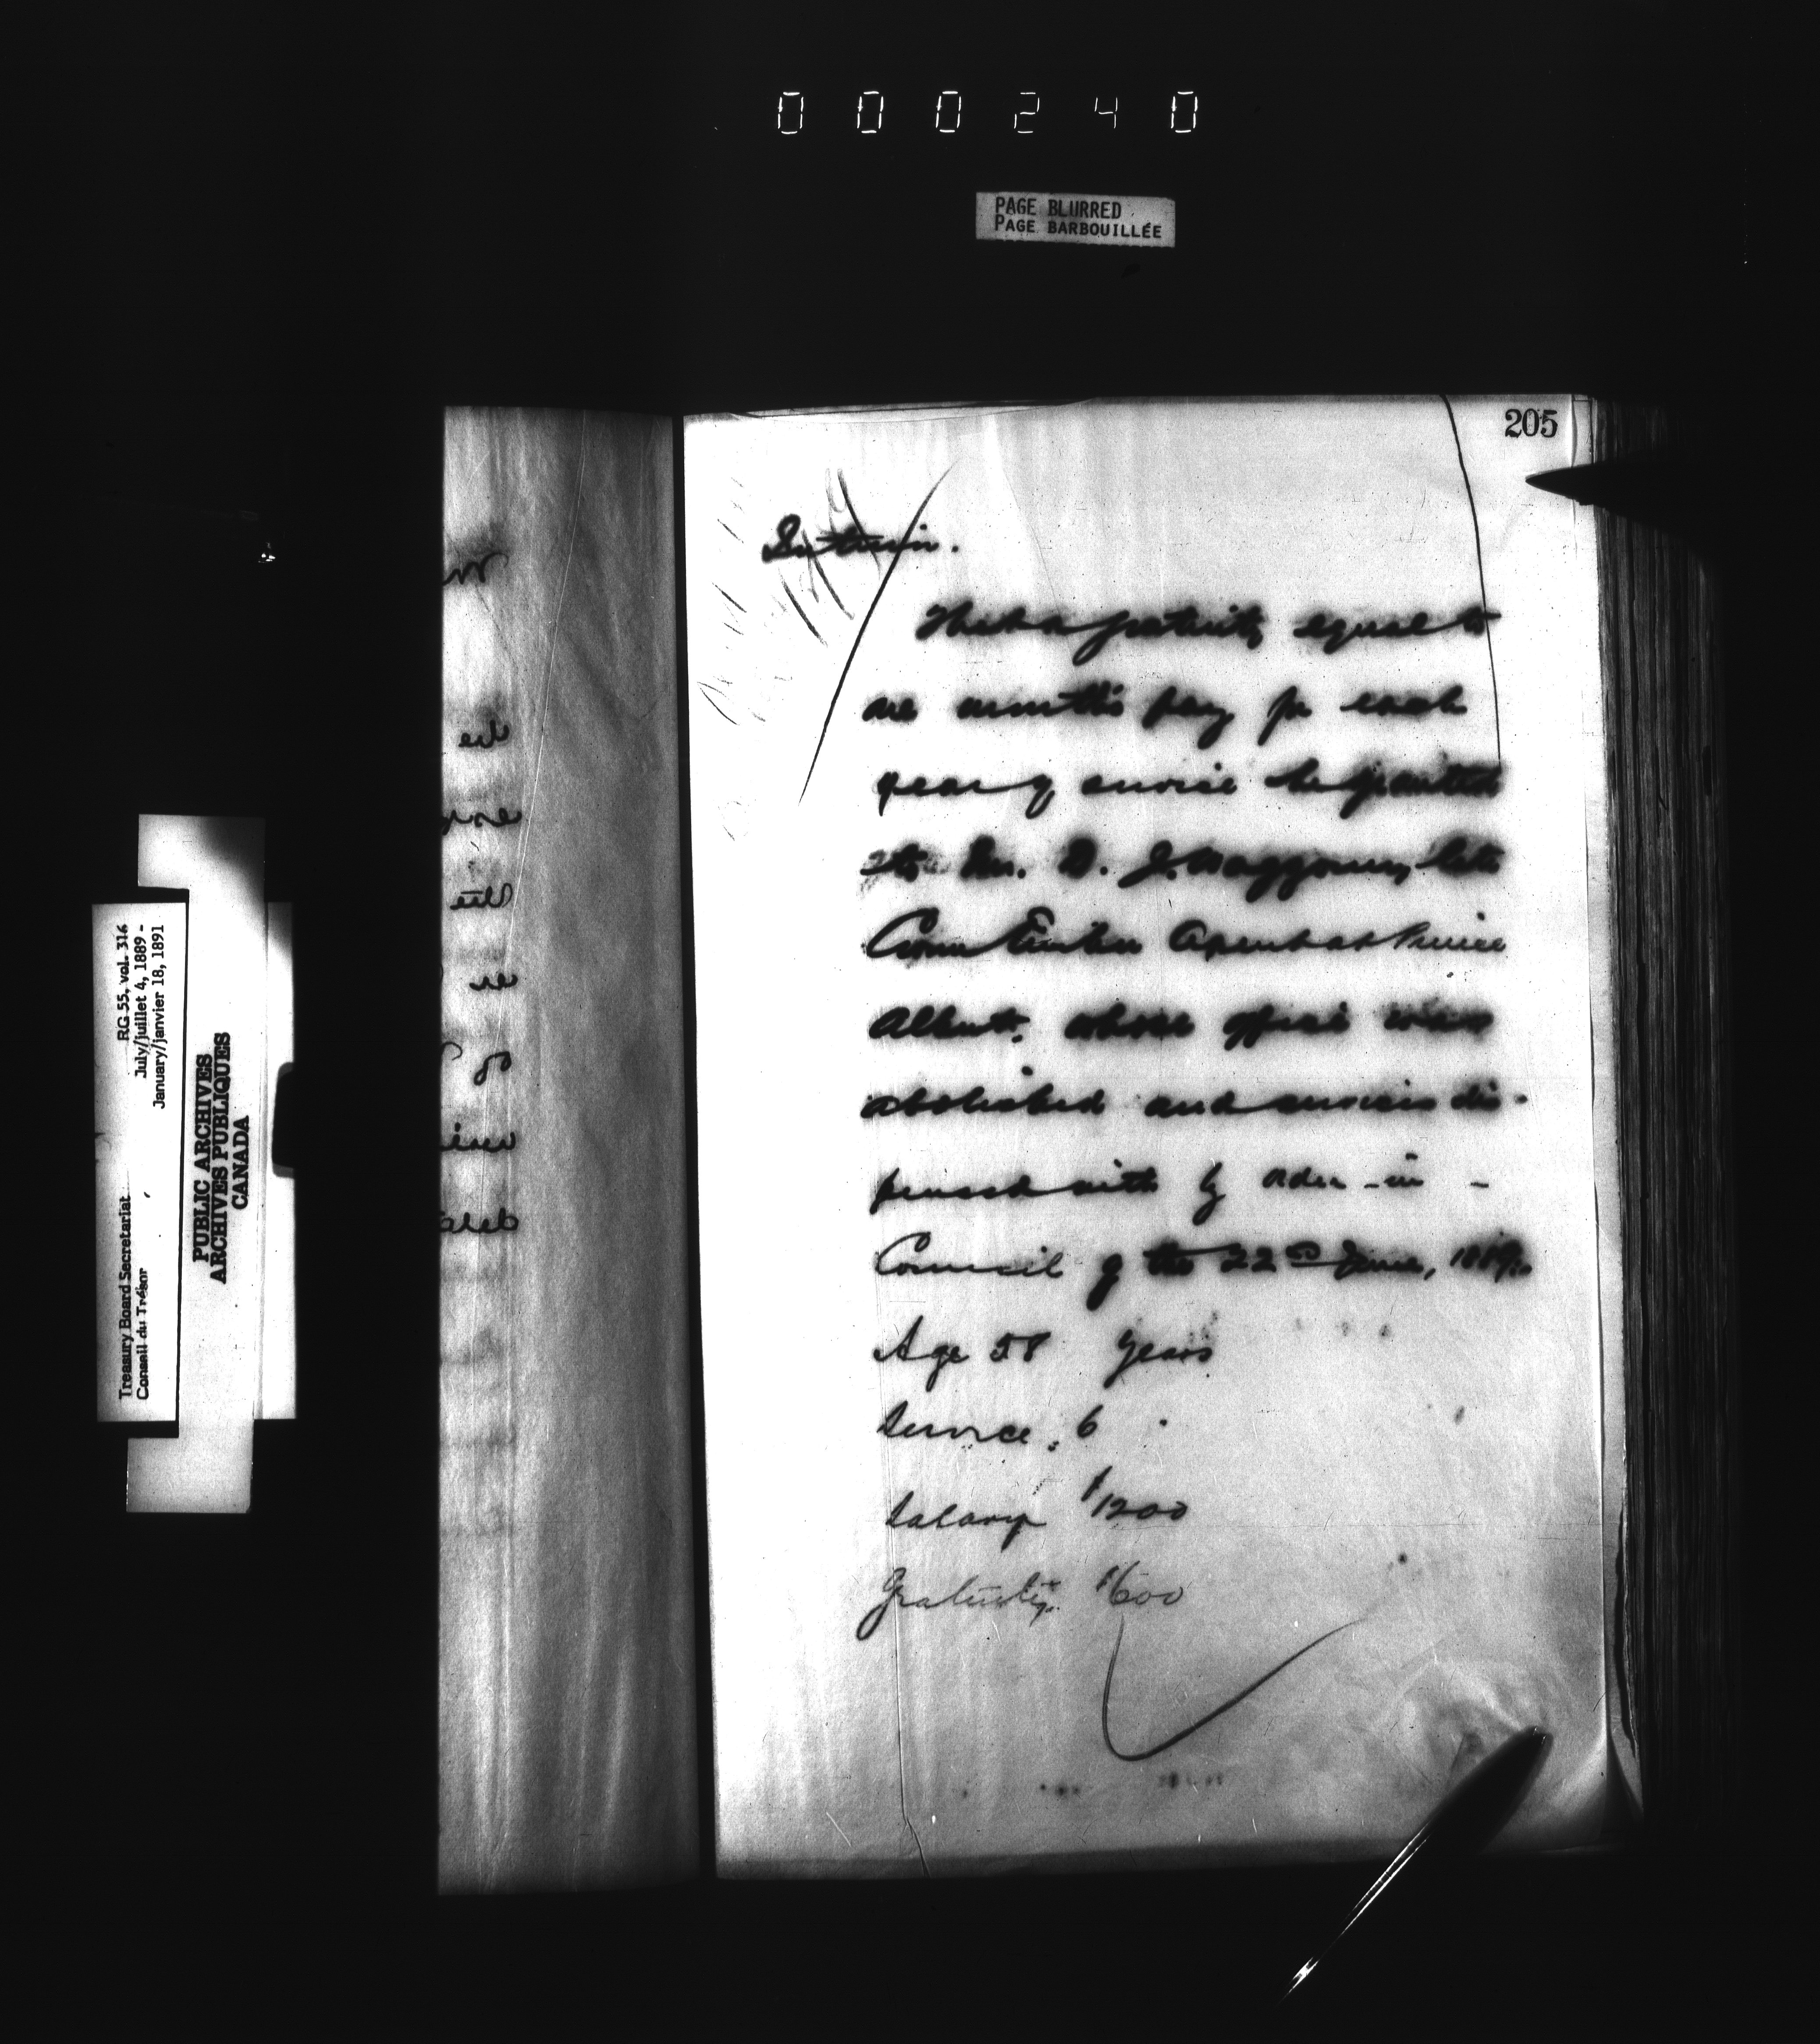 000240
PAGE BLURRED
PAGE BARBOUILLÉE
205
Interior.
That a gratuity equal to
one month's pay for each
year of service be granted
to Mr. D. J. Waggoner, late
Crown Timber Agent at Prince
Albert, whose office was
abolished and services dis-
pensed with by order-in-
Council of the 22nd June, 1889.
Age 58 years
Service, 6 "
Salary $1200
Gratuity $600
Treasury Board Secretariat RG 55, vol. 316
Conseil du Trésor July/juillet 4, 1889 -
January/janvier 18, 1891
PUBLIC ARCHIVES
ARCHIVES PUBLIQUES
CANADA